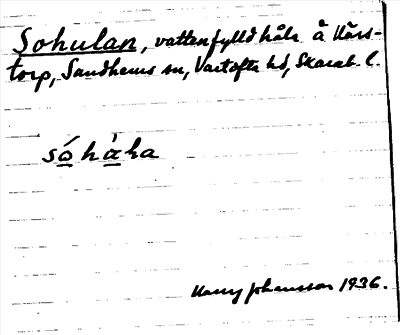 Sohulan, vattenfylld håla å Kårs-
torp, Sandhems sn, Vartofta hd, Skarab. l.
sóhàha
Harry Johansson 1936.